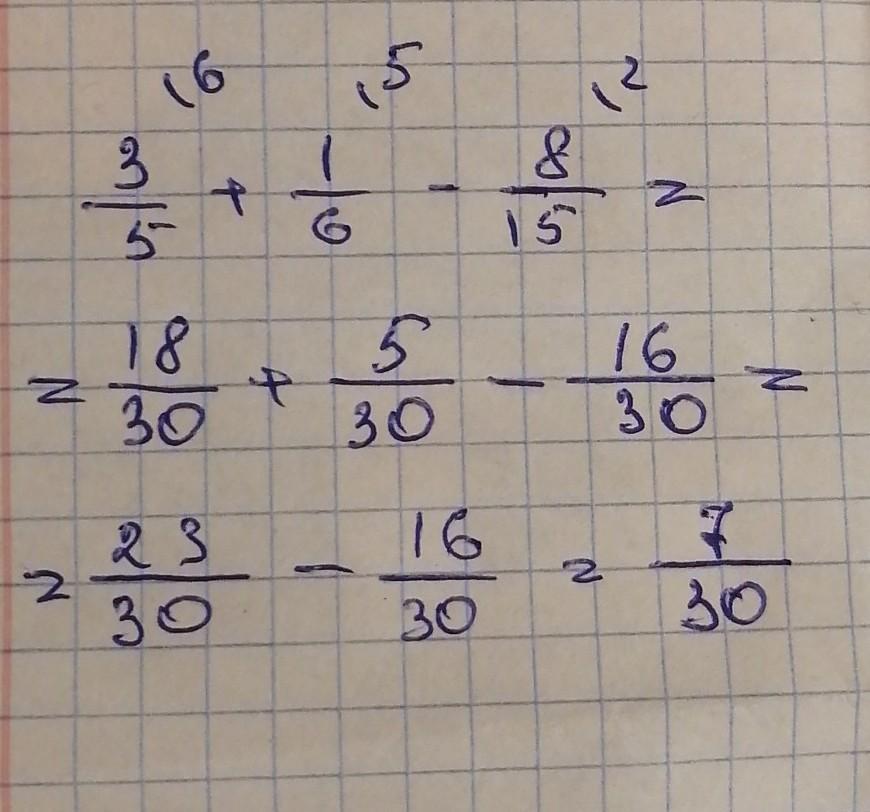 \6 \5 \2
3/5 + 1/6 - 8/15 =
= 18/30 + 5/30 - 16/30 =
= 23/30 - 16/30 = 7/30